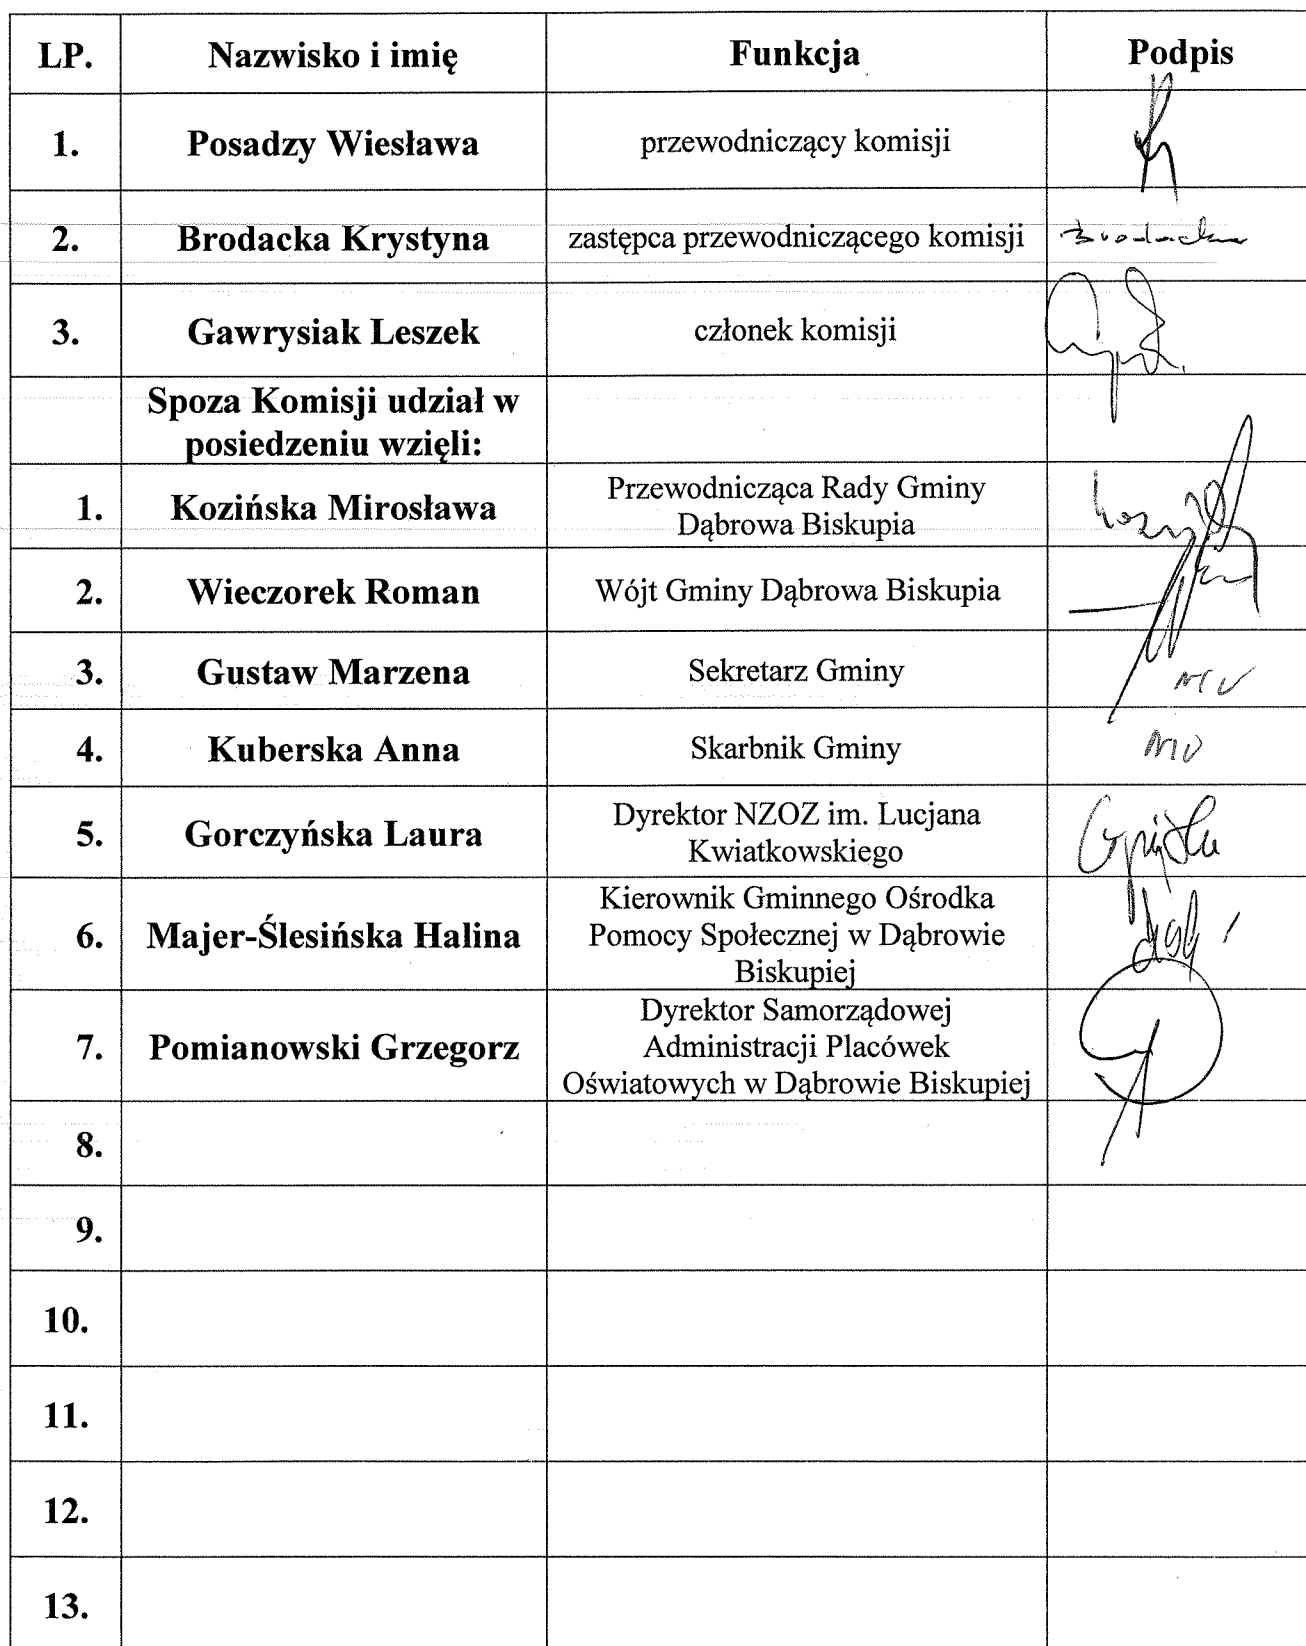 LP. Nazwisko i imię Funkcja Podpis
1. Posadzy Wiesława przewodniczący komisji
2. Brodacka Krystyna zastępca przewodniczącego komisji Brodacka
3. Gawrysiak Leszek członek komisji
Spoza Komisji udział w
posiedzeniu wzięli:
1. Kozińska Mirosława Przewodnicząca Rady Gminy
Dąbrowa Biskupia
2. Wieczorek Roman Wójt Gminy Dąbrowa Biskupia
3. Gustaw Marzena Sekretarz Gminy
4. Kuberska Anna Skarbnik Gminy
5. Gorczyńska Laura Dyrektor NZOZ im. Lucjana
Kwiatkowskiego
6. Majer-Ślesińska Halina Kierownik Gminnego Ośrodka
Pomocy Społecznej w Dąbrowie
Biskupiej
7. Pomianowski Grzegorz Dyrektor Samorządowej
Administracji Placówek
Oświatowych w Dąbrowie Biskupiej
8.
9.
10.
11.
12.
13.